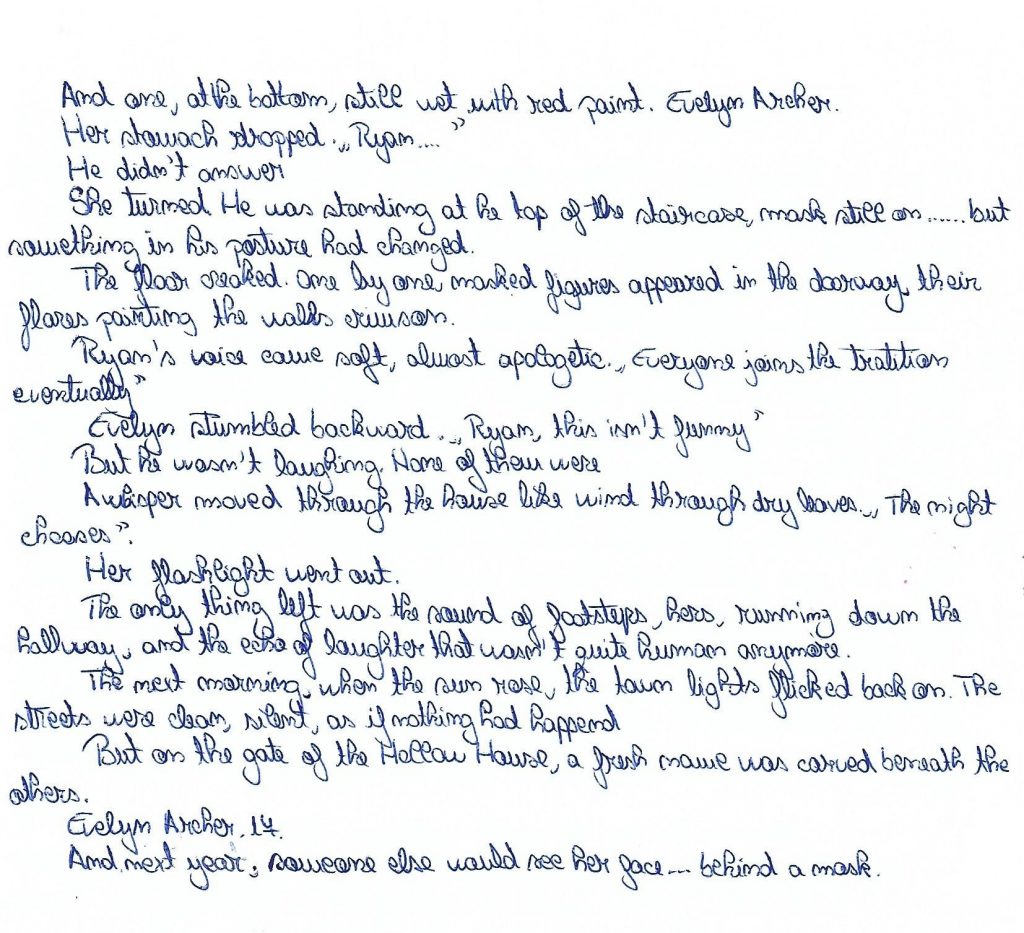 And one, at the bottom, still wet with red paint. Evelyn Archer.
Her stomach dropped. „Ryan....”
He didn't answer
She turned. He was standing at he top of the staircase, mask still on...... but
something in his posture had changed.
The floor creaked. One by one, masked figures appeared in the doorway, their
flares painting the walls crimson.
Ryan's voice came soft, almost apologetic. „Everyone joins the tratition
eventually”
Evelyn stumbled backward. „Ryan, this isn't funny”
But he wasn't laughing. None of them were
A whisper moved through the house like wind through dry leaves. „The night
chooses”.
Her flashlight went out.
The only thing left was the sound of footsteps, hers, running down the
hallway, and the echo of laughter that wasn't quite human anymore.
The next morning, when the sun rose, the town lights flicked back on. The
streets were clean, silent, as if nothing had happend
But on the gate of the Hollow House, a fresh name was carved beneath the
others.
Evelyn Archer, 17.
And next year, someone else would see her face... behind a mask.